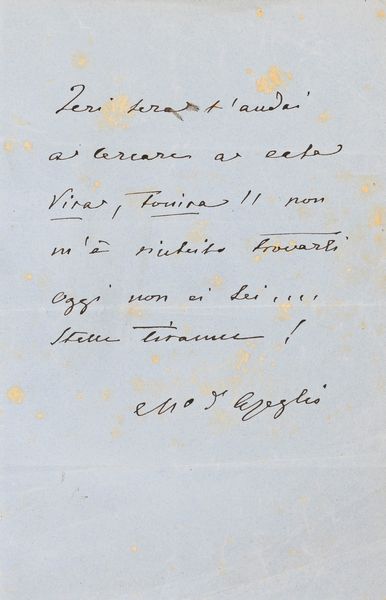 Jeri sera t'andai
a cercare a casa
Vira, Tonina!! non
m'è riuscito trovarti
Oggi non ci sei....
Stelle tiranne!
Mo d'Azeglio